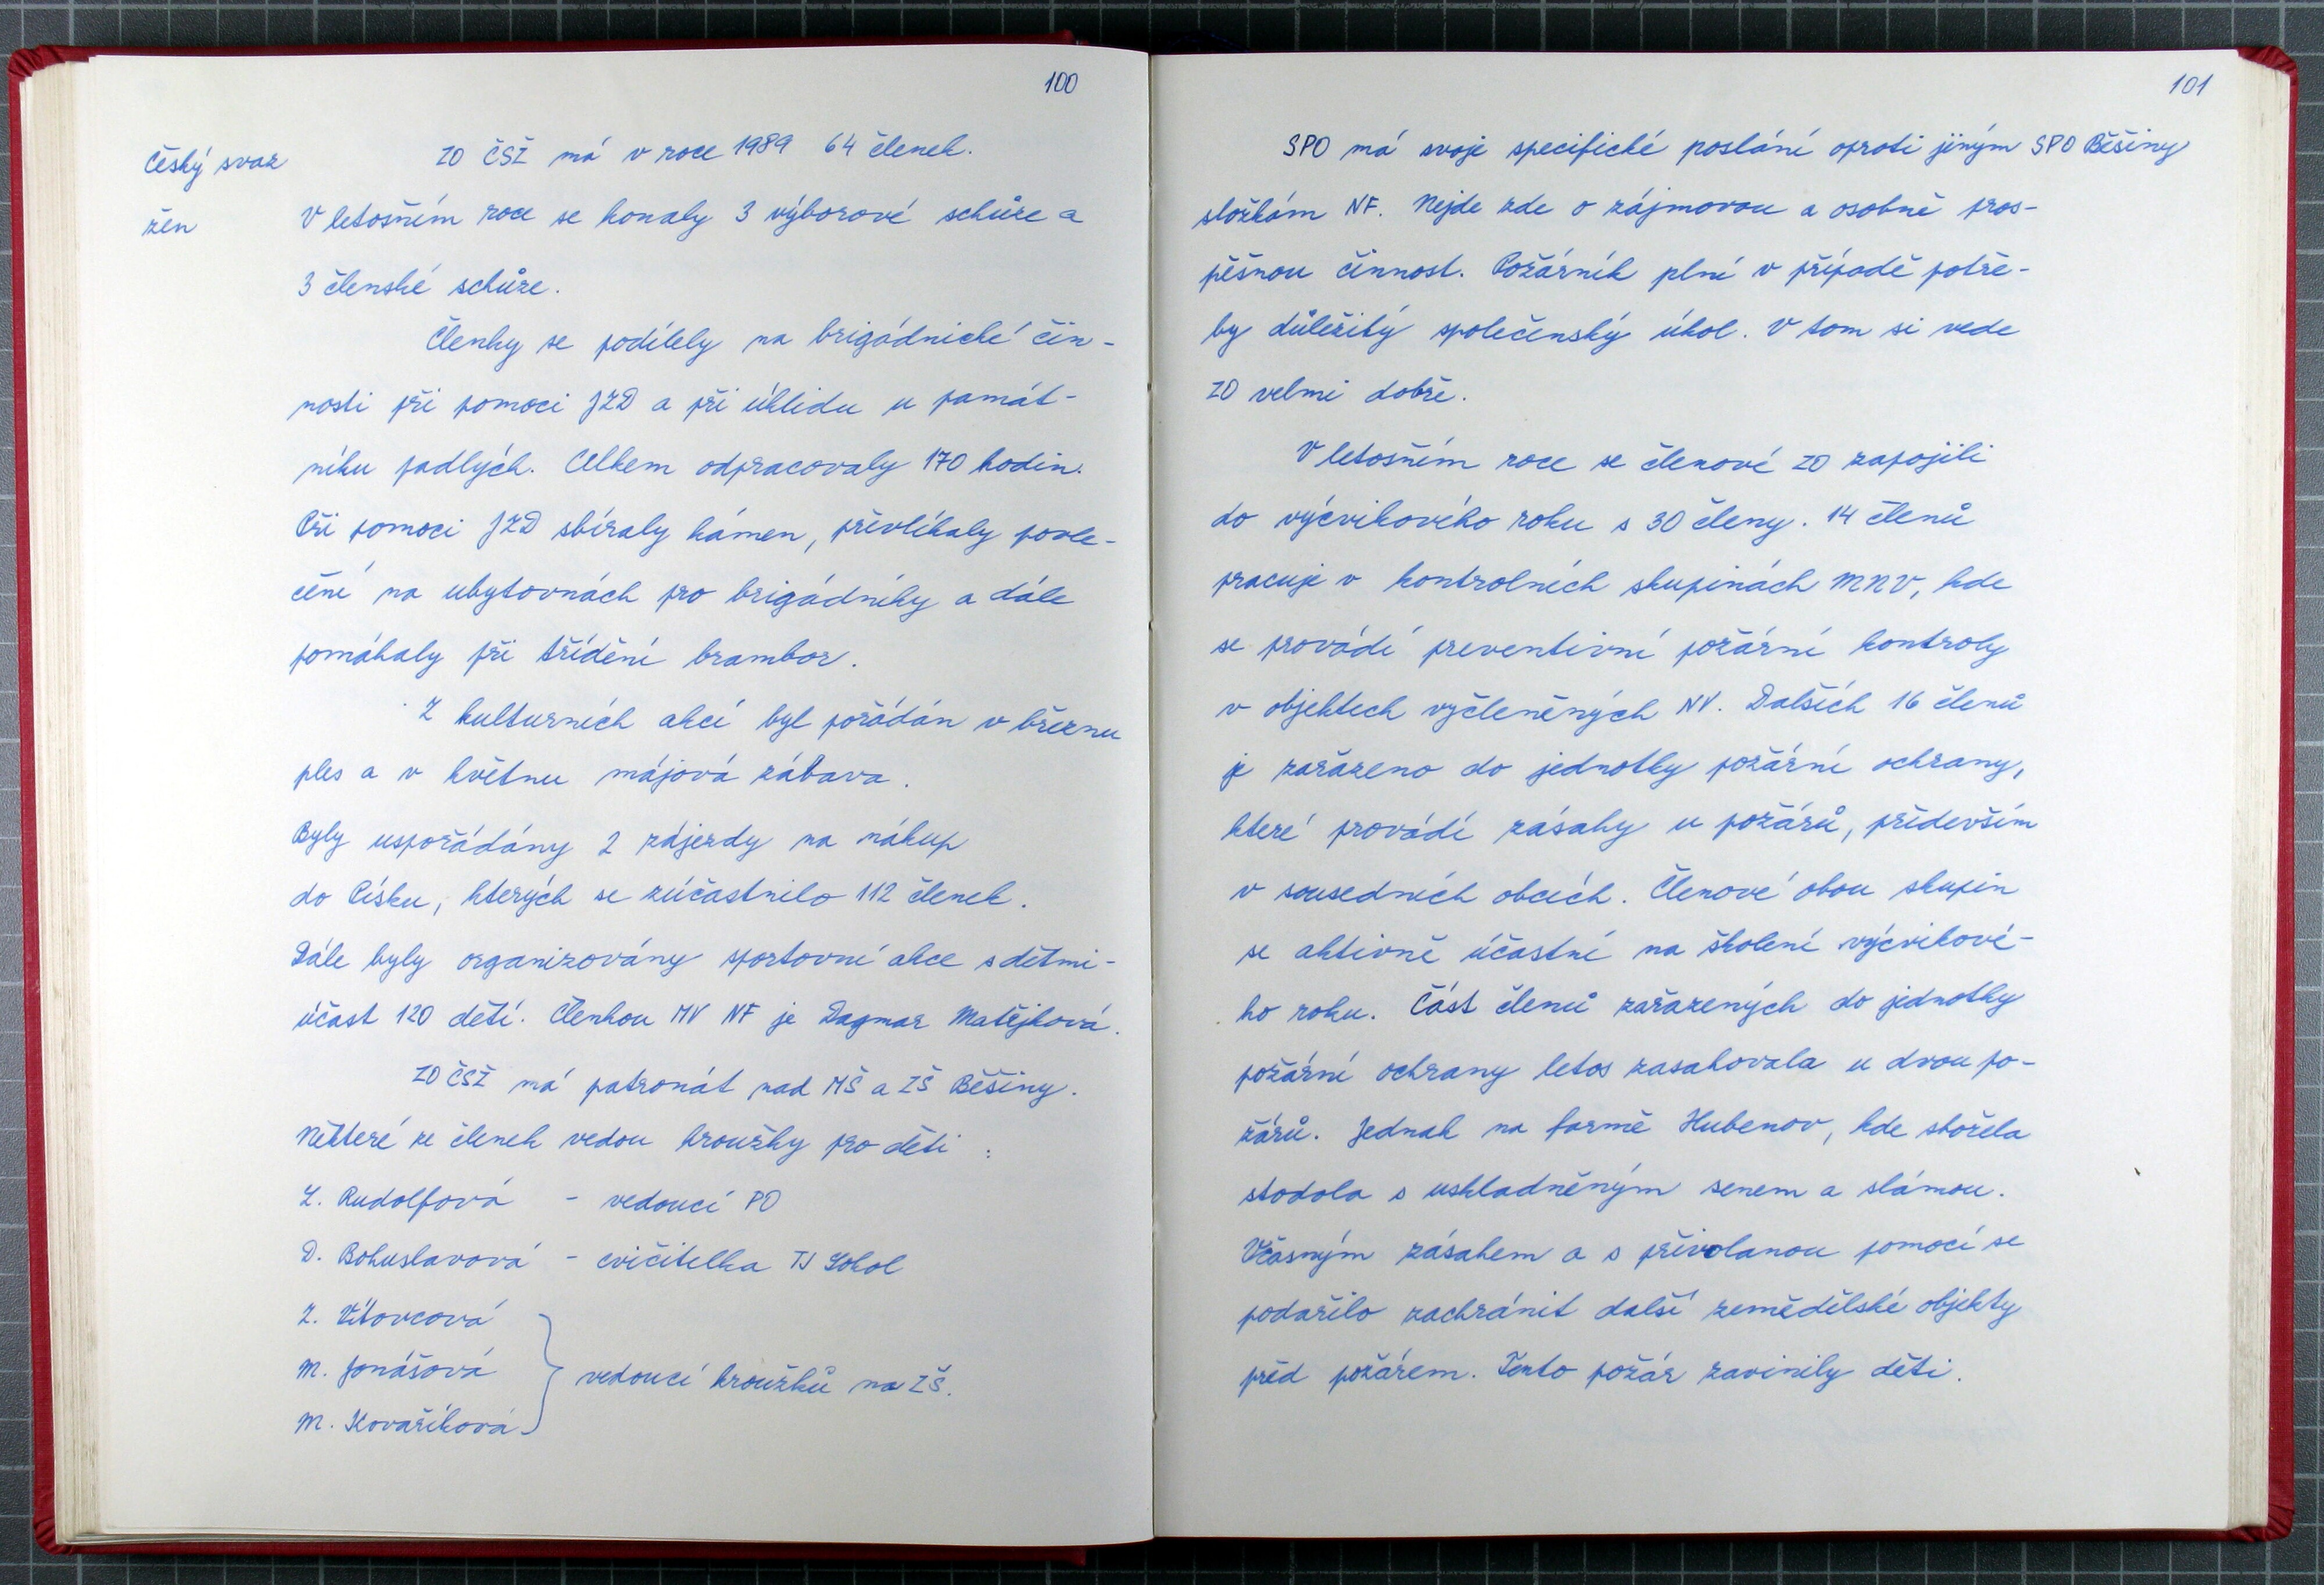 100
Český svaz
žen
ZO ČSŽ má v roce 1989 64 členek.
V letošním roce se konaly 3 výborové schůze a
3 členské schůze.
Členky se podílely na brigádnické čin-
nosti při pomoci JZD a při úklidu u památ-
níku padlých. Celkem odpracovaly 170 hodin.
Při pomoci JZD sbíraly kámen, převlíkaly povle-
čení na ubytovnách pro brigádníky a dále
pomáhaly při třídění brambor.
Z kulturních akcí byl pořádán v březnu
ples a v květnu májová zábava.
Byly uspořádány 2 zájezdy na nákup
do Písku, kterých se zúčastnilo 112 členek.
Dále byly organizovány sportovní akce s dětmi-
účast 120 dětí. Členkou MV NF je Dagmar Matějková.
ZO ČSŽ má patronát nad MŠ a ZŠ Běšiny.
Některé ze členek vedou kroužky pro děti :
L. Rudolfová - vedoucí PO
D. Bohuslavová - cvičitelka TJ Sokol
Z. Vítovcová
M. Jonášová } vedoucí kroužků na ZŠ.
M. Kovaříková
101
SPO má svoje specifické poslání oproti jiným SPO Běšiny
složkám NF. Nejde zde o zájmovou a osobně pros-
pěšnou činnost. Požárník plní v případě potře-
by důležitý společenský úkol. V tom si vede
ZO velmi dobře.
V letošním roce se členové ZO zapojili
do výcvikového roku s 30 členy. 14 členů
pracuje v kontrolních skupinách MNV, kde
se provádí preventivní požární kontroly
v objektech vyčleněných NV. Dalších 16 členů
je zařazeno do jednotky požární ochrany,
které provádí zásahy u požárů, především
v sousedních obcích. Členové obou skupin
se aktivně účastní na školení výcvikové-
ho roku. Část členů zařazených do jednotky
požární ochrany letos zasahovala u dvou po-
žárů. Jednak na farmě Hubenov, kde shořela
stodola s uskladněným senem a slámou.
Včasným zásahem a s přivolanou pomocí se
podařilo zachránit další zemědělské objekty
před požárem. Tento požár zavinily děti.